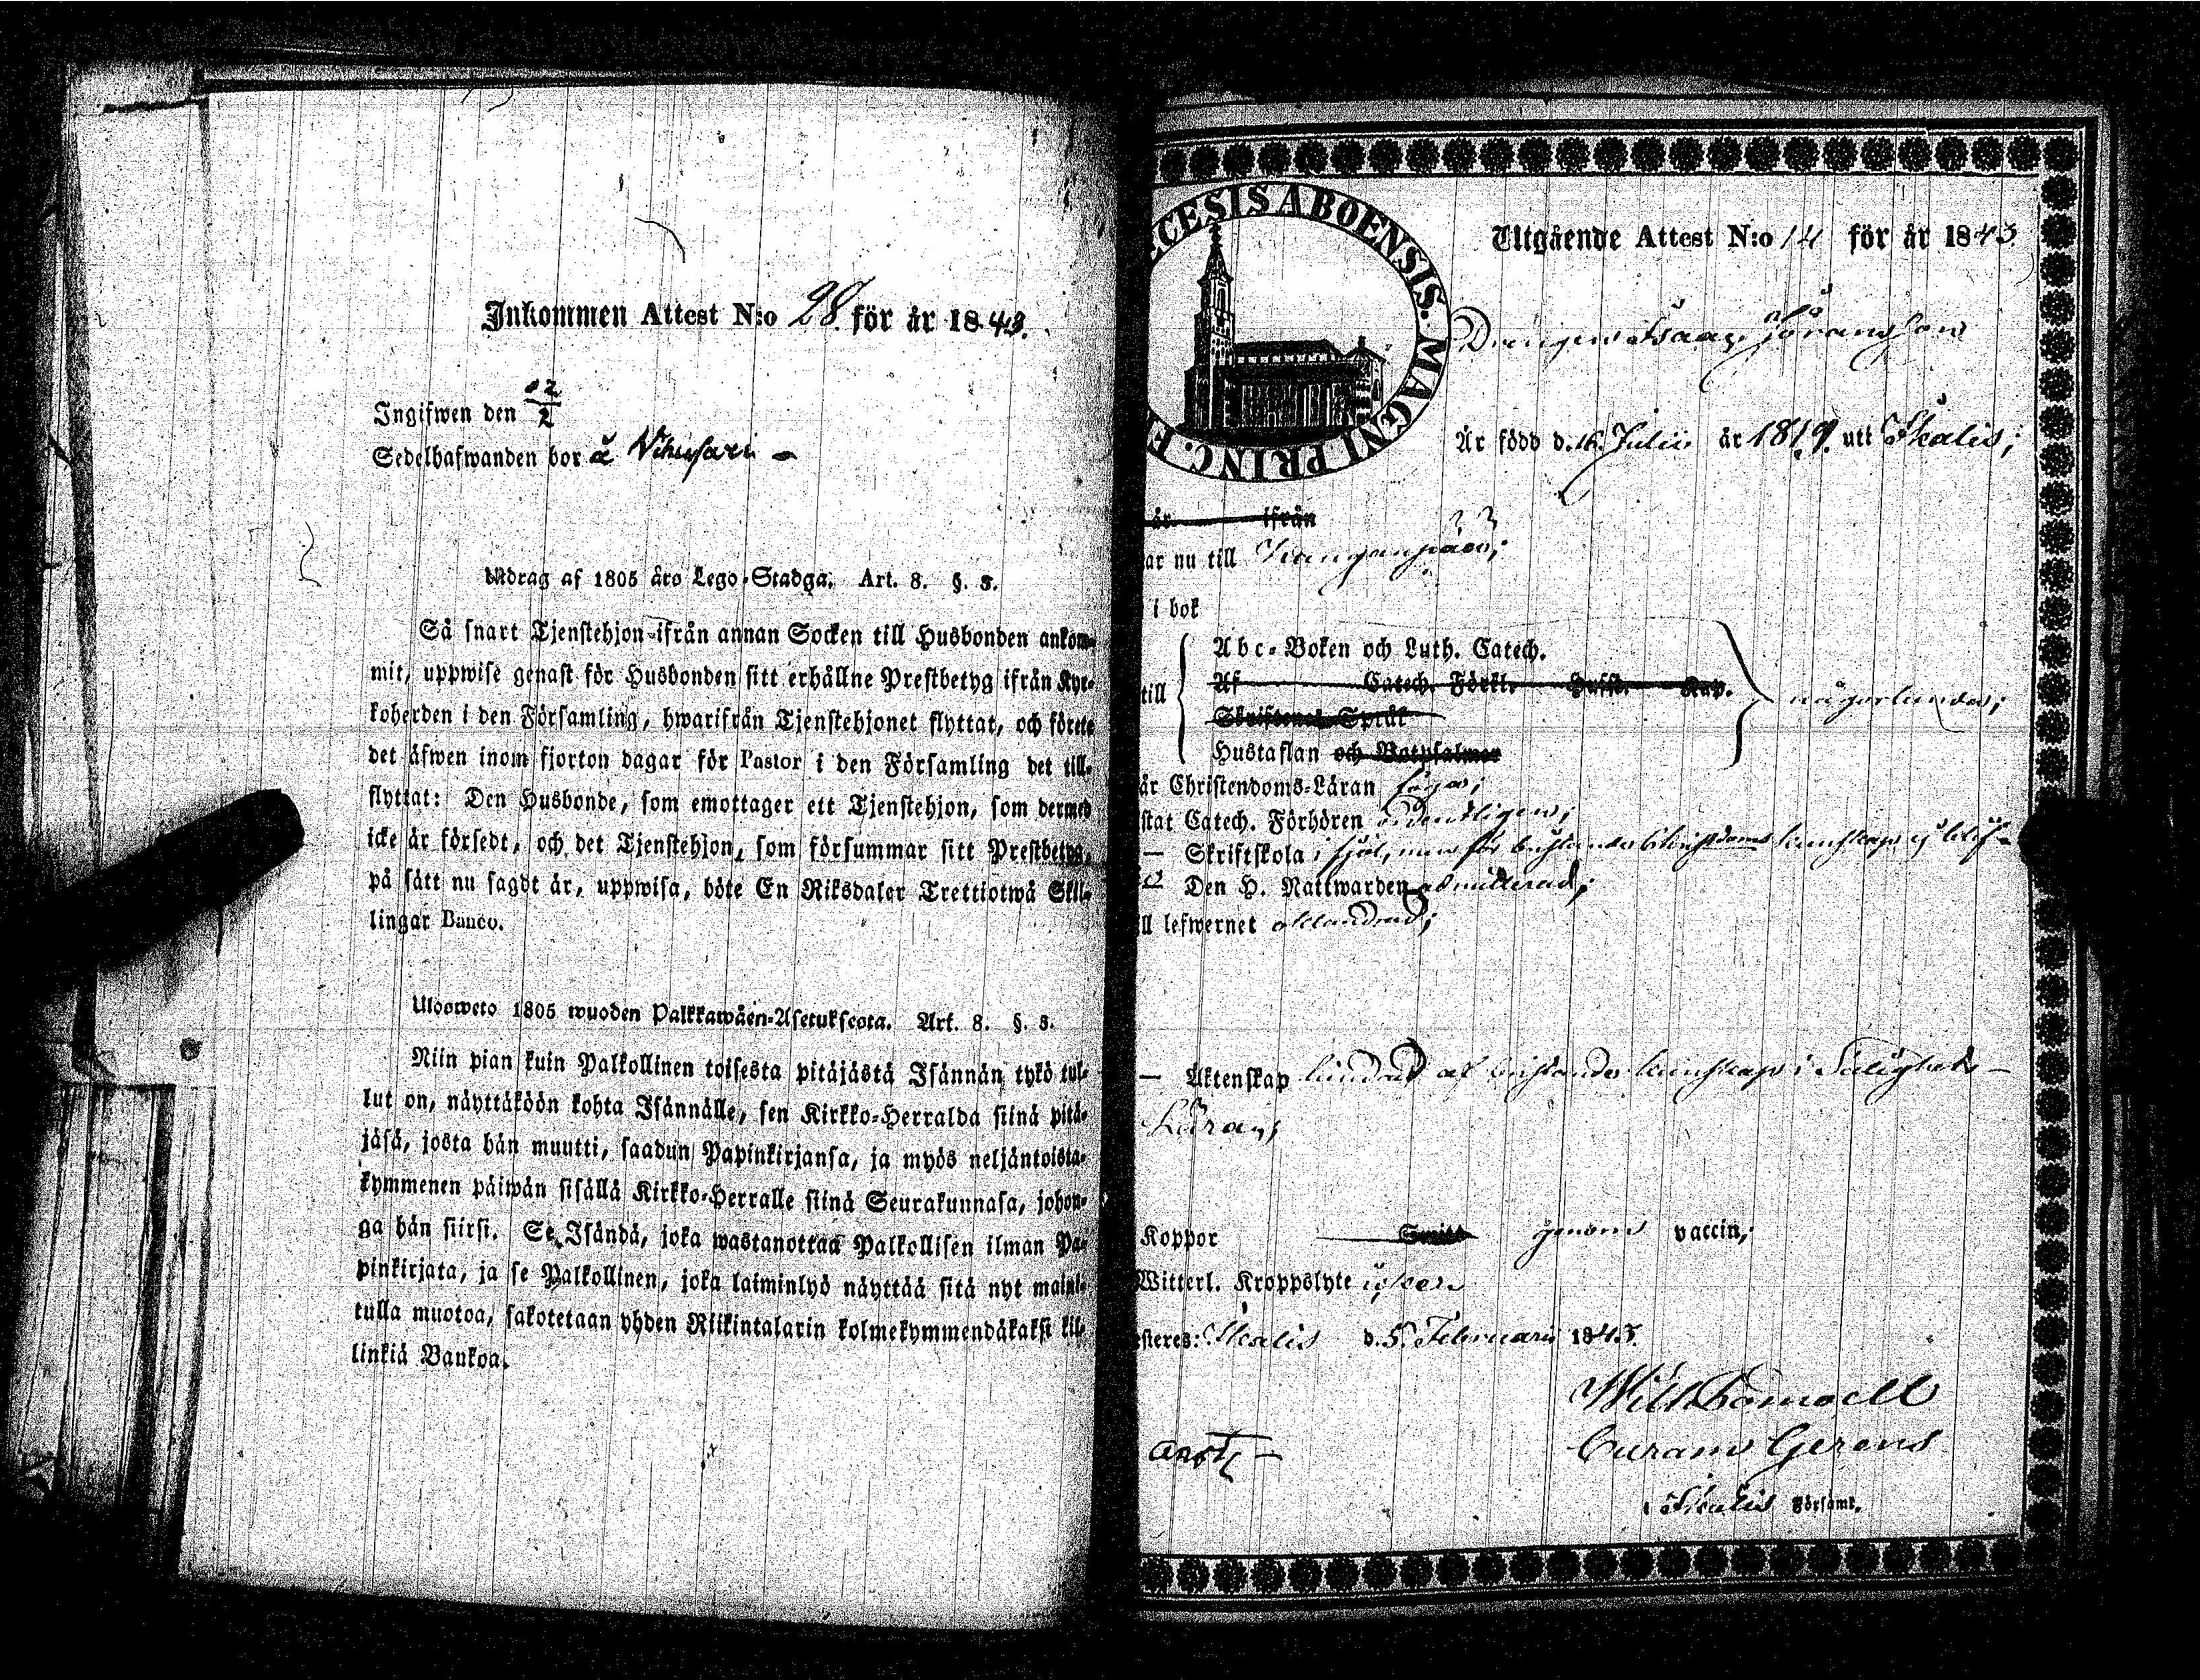 Inkommen Attest N:o 28. för år 1843.
Ingifwen den 12/2
Sedelhafwanden bor å
Utdrag af 1805 års Lego-Stadga. Art. 8. §. 5.
Så snart Tjenstehjon ifrån annan Socken till Husbonden ankom-
mit, uppwise genast för Husbonden sitt erhållne Prestbetyg ifrån Kyr-
koherden i den Församling, hwarifrån Tjenstehjonet flyttat, och förete
det äfwen inom fjorton dagar för Pastor i den Församling det till-
flyttat: Den Husbonde, som emottager ett Tjenstehjon, som dermed
icke är försedt, och det Tjenstehjon, som försummar sitt Prestbetyg,
på sätt nu sagdt är, uppwisa, böte En Riksdaler Trettiotwå Skil-
lingar Banco.
Ulosweto 1805 wuoden Palkkawäen-Asetuksesta. Art. 8. §. 5.
Niin pian kuin Palkollinen toisesta pitäjästä Isännän tykö tul-
lut on, näyttäköön kohta Isännälle, sen Kirkko-Herralda siinä pitä-
jäsä, josta hän muutti, saadun Papinkirjansa, ja myös neljäntoista-
kymmenen päiwän sisällä Kirkko-Herralle siinä Seurakunnasa, johon-
ga hän siirsi. Se Isändä, joka wastanottaa Palkollisen ilman Pa-
pinkirjata, ja se Palkollinen, joka laiminlyö näyttää sitä nyt maini-
tulla muotoa, sakotetaan yhden Riikintalarin kolmekymmendäkaksi kil-
linkiä Bankoa.
CESIS ABOENSIS. MAGNI PRINC. F
Utgående Attest N:o 14 för år 1843
Drengen Isaac Jöransson
Är född d. 16. Julii år 1819. uti Skalis;
år ifrån
ar nu till
i bok
Abc-Boken och Luth. Catech.
till Af Catech. Förkl. Hufst. Kap.
Skriftenes Språk
någorlunda;
Hustaflan och Botpsalmer
är Christendoms-Läran föga;
stat Catech. Förhören ordentligen;
— Skriftskola men för bristande Christendoms kunskap ej blif-
Den H. Nattwarden admitterad;
ll lefwernet oklandrad;
— Äktenskap hindrad af bristande kunskap i Salighets-
Läran;
Koppor Smitt genom vaccin;
Witterl. Kroppslyte ingen
steres: Skalis d. 5. Februarii 1843.
Curam Gerens
i Skalis Församl.